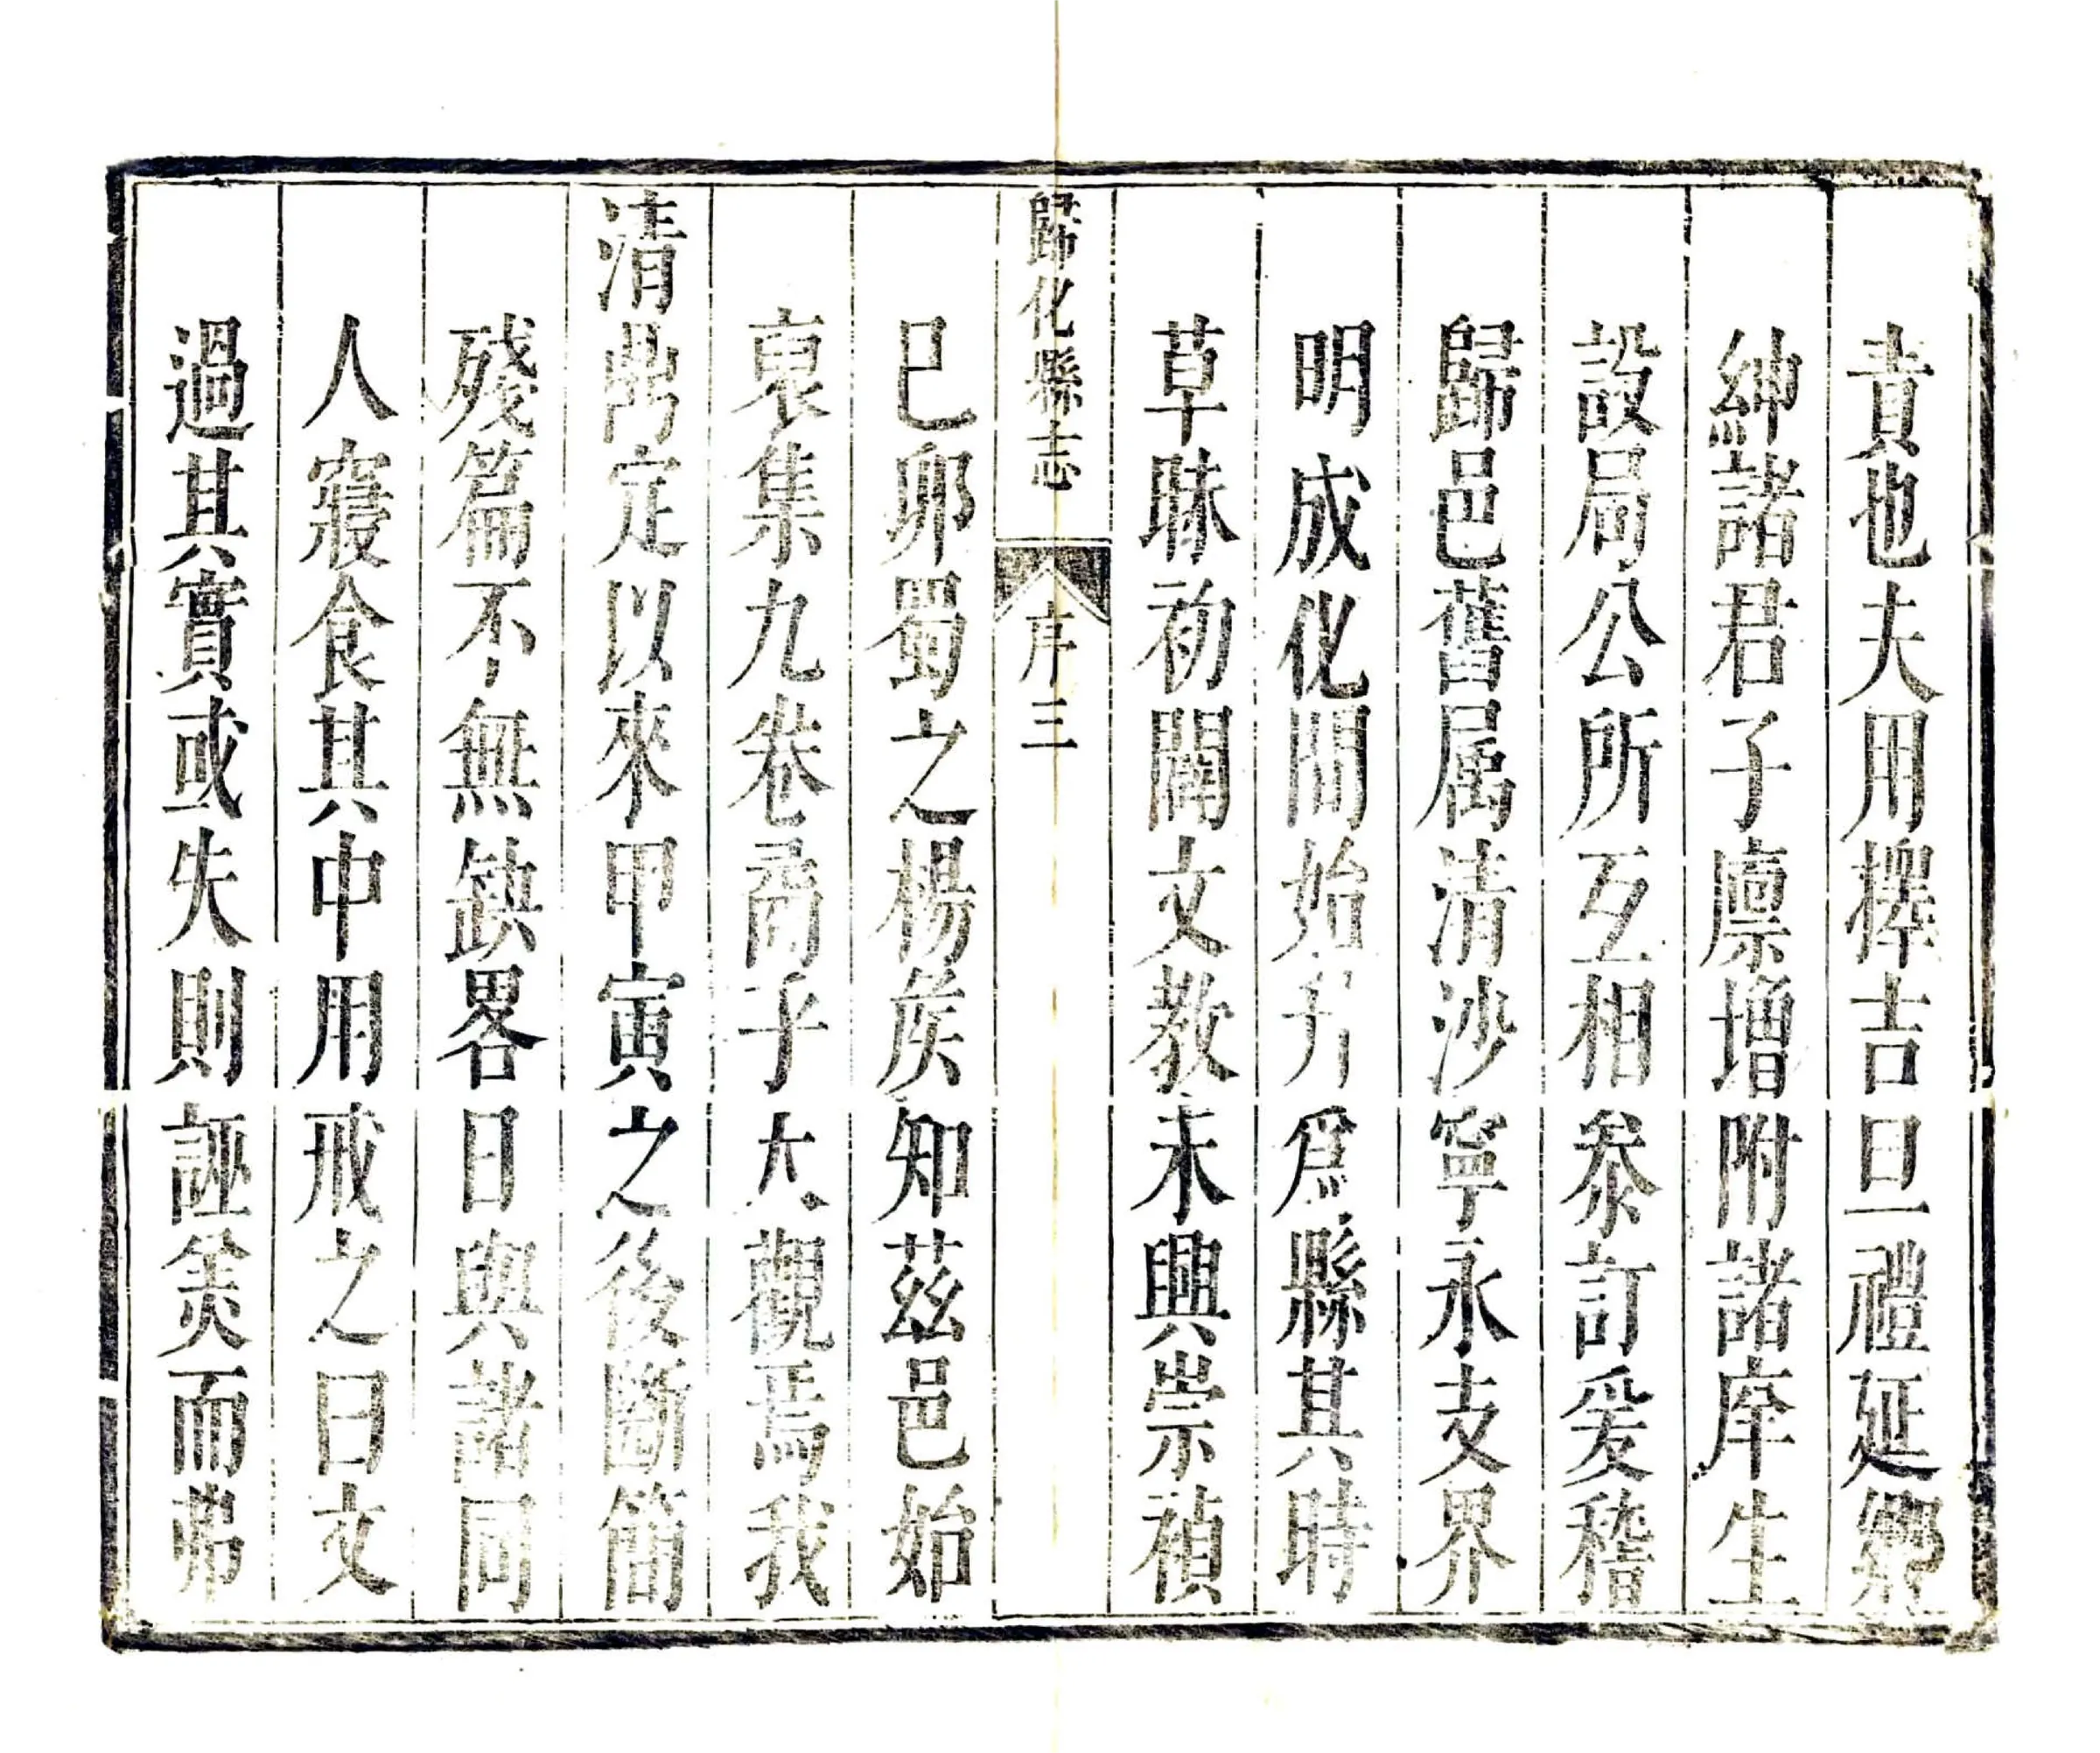 責也夫用擇吉旦禮延鄉
紳諸君子廩增附諸庠生
設局公所互相叅訂爰稽
歸邑舊属清沙寧永支界
明成化間始升爲縣其時
草昧初闢文教未興崇禎
歸化縣志
序三
已卯蜀之楊矦知茲邑始
裒集九卷矞乎大觀焉我
清鼎定以來甲寅之後斷簡
殘篇不無缺畧日與諸同
人寢食其中用戒之曰文
過其實或失則誣羙而弗